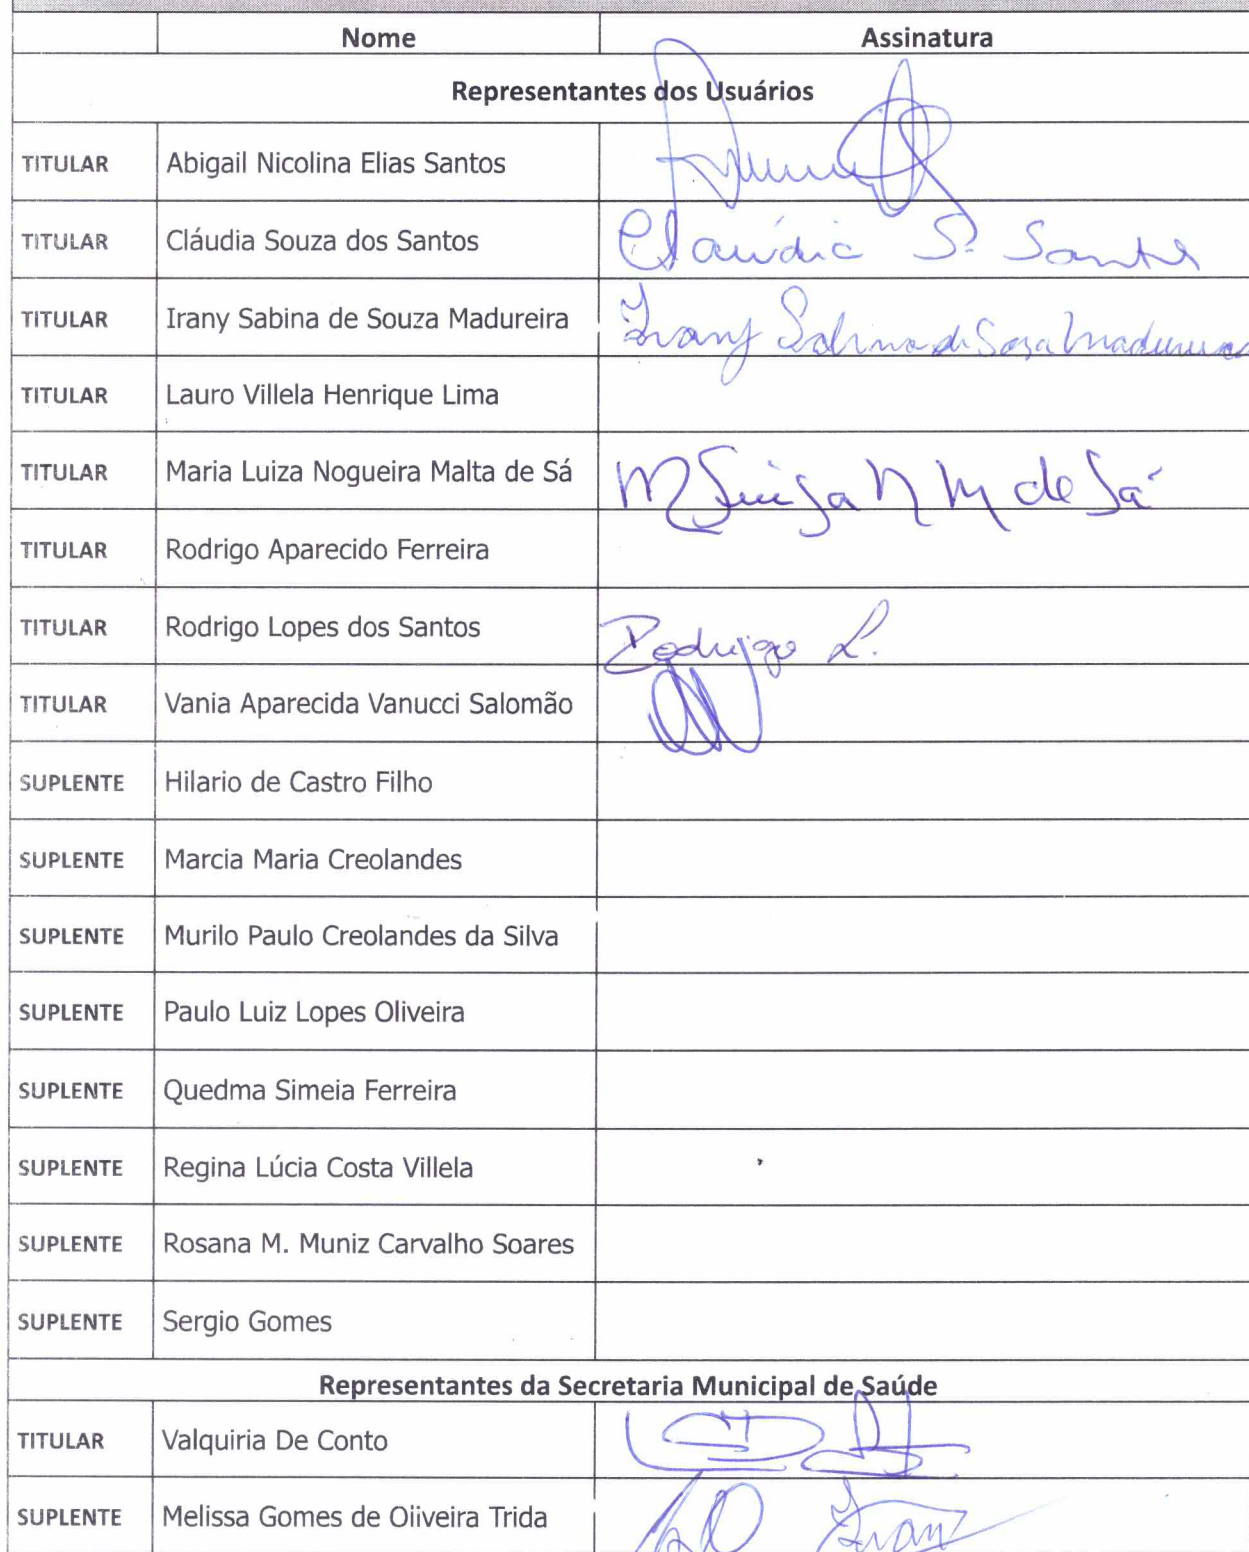 Nome Assinatura
Representantes dos Usuários
TITULAR Abigail Nicolina Elias Santos
TITULAR Cláudia Souza dos Santos Claúdia S. Santos
TITULAR Irany Sabina de Souza Madureira Irany Sabina de Souza Madureira
TITULAR Lauro Villela Henrique Lima
TITULAR Maria Luiza Nogueira Malta de Sá M Luiza N M de Sá
TITULAR Rodrigo Aparecido Ferreira
TITULAR Rodrigo Lopes dos Santos Rodrigo L.
TITULAR Vania Aparecida Vanucci Salomão
SUPLENTE Hilario de Castro Filho
SUPLENTE Marcia Maria Creolandes
SUPLENTE Murilo Paulo Creolandes da Silva
SUPLENTE Paulo Luiz Lopes Oliveira
SUPLENTE Quedma Simeia Ferreira
SUPLENTE Regina Lúcia Costa Villela
SUPLENTE Rosana M. Muniz Carvalho Soares
SUPLENTE Sergio Gomes
Representantes da Secretaria Municipal de Saúde
TITULAR Valquiria De Conto
SUPLENTE Melissa Gomes de Oliveira Trida